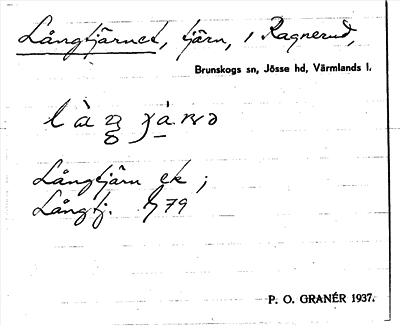 Långtjärnet, tjärn, i Ragnerud,
Brunskogs sn, Jösse hd, Värmlands l.
Långtjärn ek ;
Långtj. 79
P. O. GRANÉR 1937.